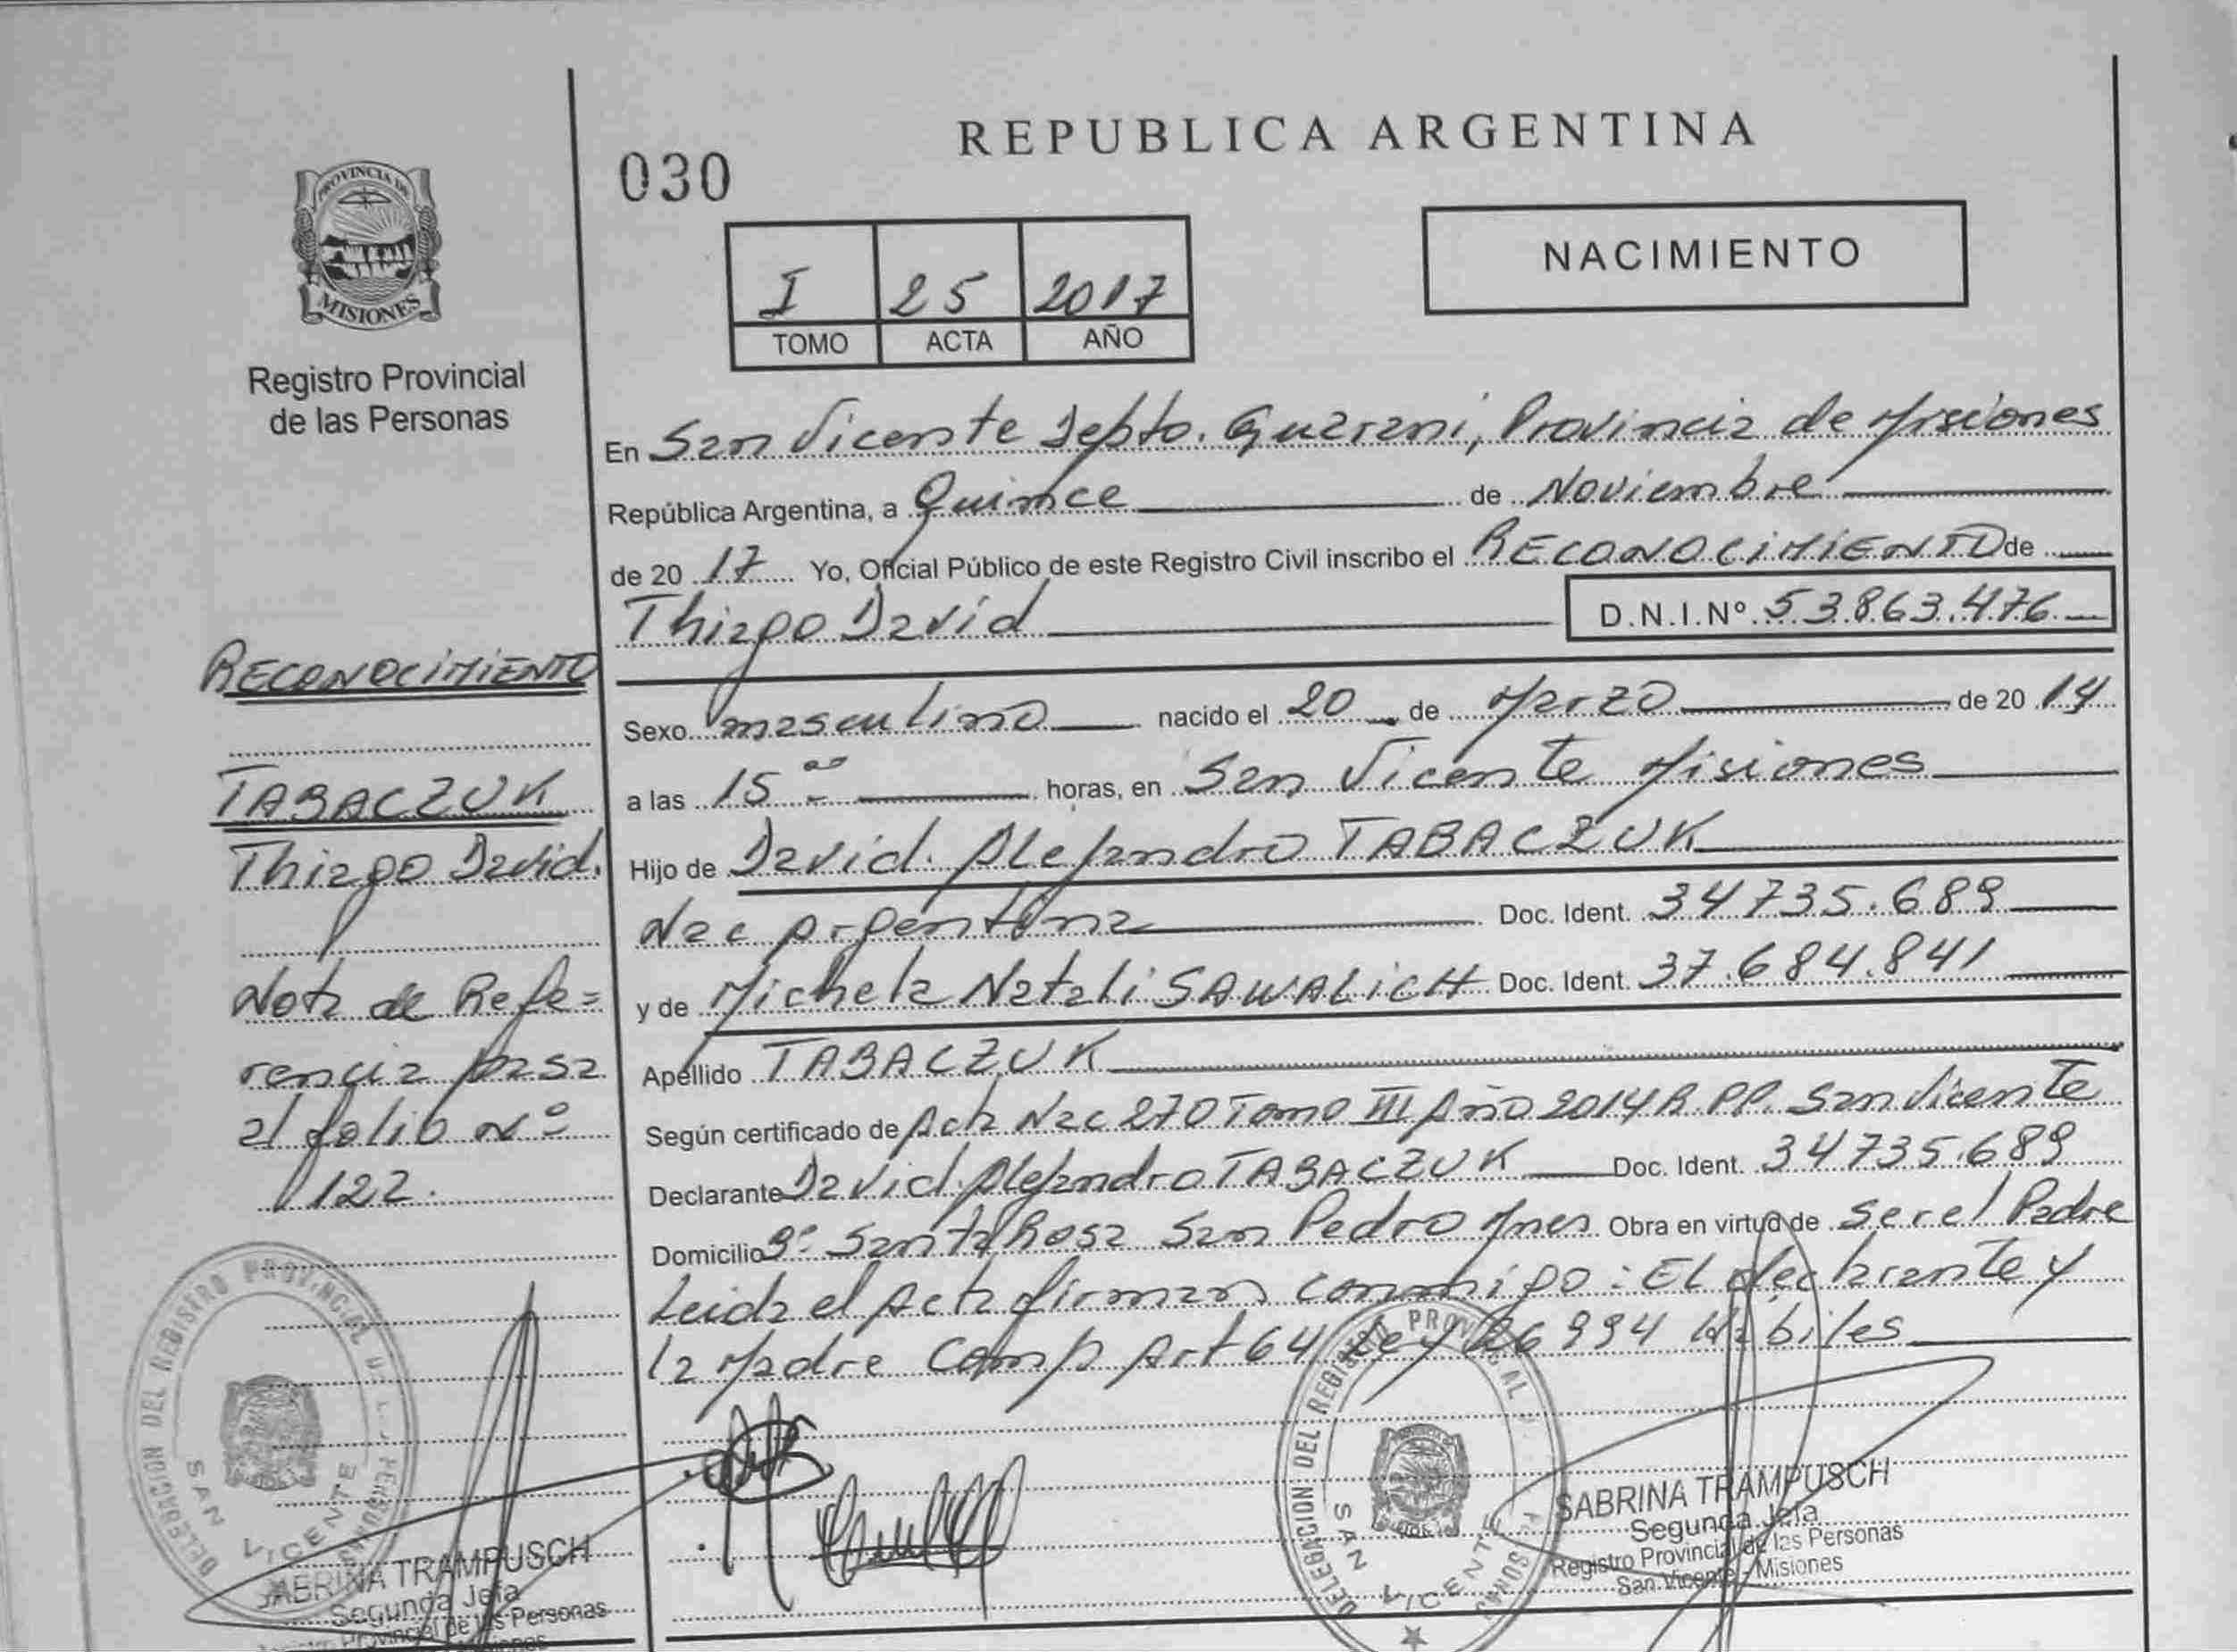 REPUBLICA ARGENTINA
030
PROVINCIA DE
MISIONES
Registro Provincial
de las Personas
I 25 2017
TOMO ACTA AÑO
NACIMIENTO
En San Vicente Depto. Guarani, Provincia de Misiones
República Argentina, a Quince de Noviembre
de 20 17 Yo, Oficial Público de este Registro Civil inscribo el RECONOCIMIENTO de
Thiago David D.N.I.Nº 53.863.476
Sexo masculino nacido el 20 de Marzo de 20 14
a las 15 00 horas, en San Vicente Misiones
Hijo de David Alejandro TABACZUK
Nac Argentina Doc. Ident. 34735.689
y de Michela Natali SAWALICH Doc. Ident. 37.684.841
Apellido TABACZUK
Según certificado de Acta Nac 270 Tomo III Año 2014 R.PP. San Vicente
Declarante David Alejandro TABACZUK Doc. Ident. 34735.689
Domicilio Bº Santa Rosa San Pedro Mnes Obra en virtud de ser el Padre
Leida el Acta firman conmigo: El declarante y
la Madre Comp Art 64 Ley 26994
RECONOCIMIENTO
TABACZUK
Thiago David.
Nota de Refe=
rencia pasa
al folio Nº
122.
DELEGACION DEL REGISTRO PROVINCIAL DE LAS PERSONAS
SAN VICENTE
SABRINA TRAMPUSCH
Segunda Jefa
Registro Provincial de las Personas
DELEGACION DEL REGISTRO PROVINCIAL DE LAS PERSONAS
SAN VICENTE
SABRINA TRAMPUSCH
Segunda Jefa
Registro Provincial de las Personas
San Vicente - Misiones